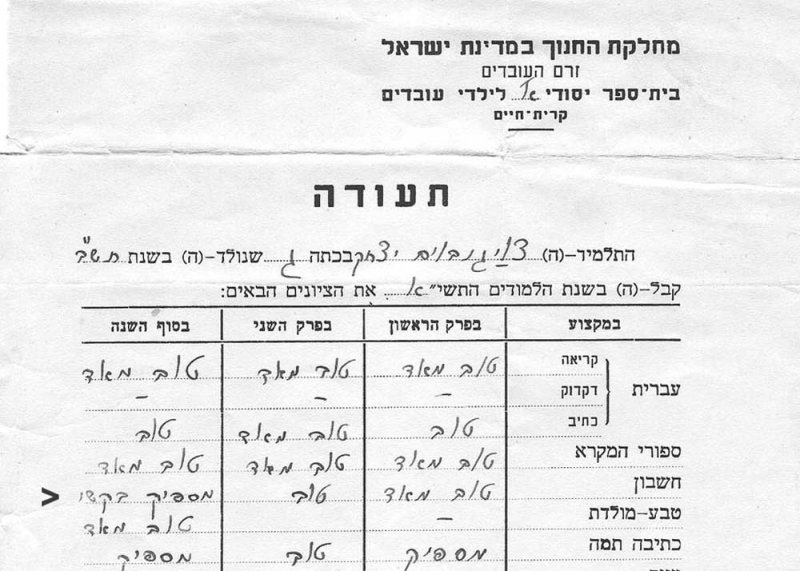 מחלקת החנוך במדינת ישראל
זרם העובדים
בית-ספר יסודי א' לילדי עובדים
קרית-חיים
תעודה
התלמיד-(ה) צויגנבוים יצחק בכתה ג שנולד-(ה) בשנת תש"ב
קבל-(ה) בשנת הלמודים התשי"א את הציונים הבאים:
במקצוע בפרק הראשון בפרק השני בסוף השנה
עברית קריאה טוב מאד טוב מאד טוב מאד
דקדוק – – –
כתיב טוב טוב מאוד טוב
ספורי המקרא טוב מאד טוב מאד טוב מאד
חשבון טוב מאד טוב מספיק בקשי >
טבע-מולדת – טוב מאד
כתיבה תמה מספיק טוב מספיק